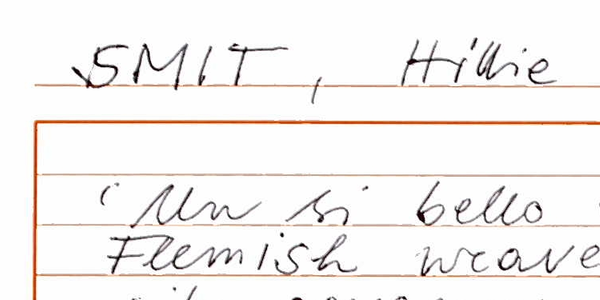 SMIT, Hillie
'Un si bello
Flemish weave